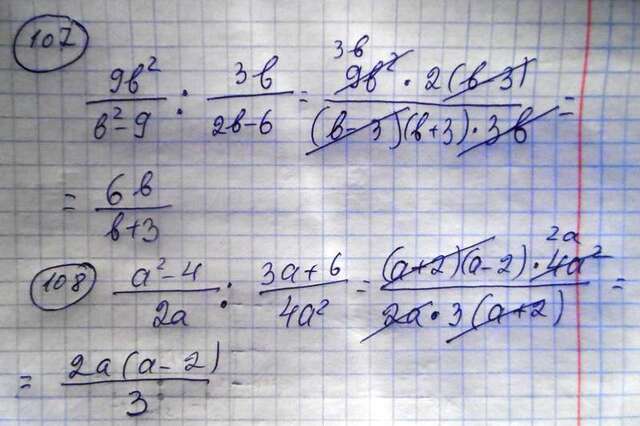 107
9b²/(b²-9) : 3b/(2b-6) = 3b 9b² · 2(b-3)/((b-3)(b+3) · 3b) =
= 6b/(b+3)
108 (a²-4)/(2a) : (3a+6)/(4a²) = (a+2)(a-2) · 2a 4a²/(2a · 3(a+2)) =
= 2a(a-2)/3